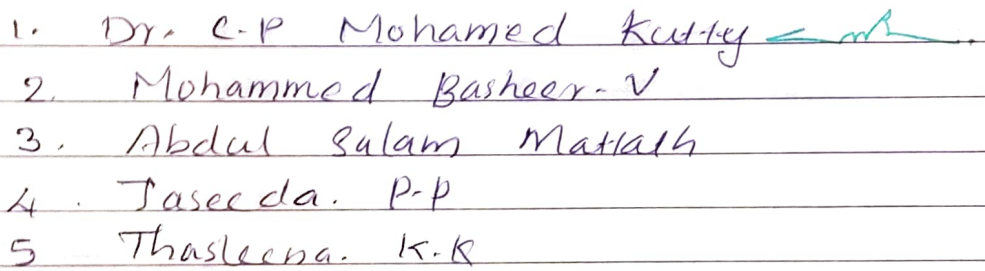 1. Dr. C.P Mohamed Kutty
2. Mohammed Basheer. V
3. Abdul Salam Mattath
4. Jaseeda. P.P
5 Thasleena. K.K